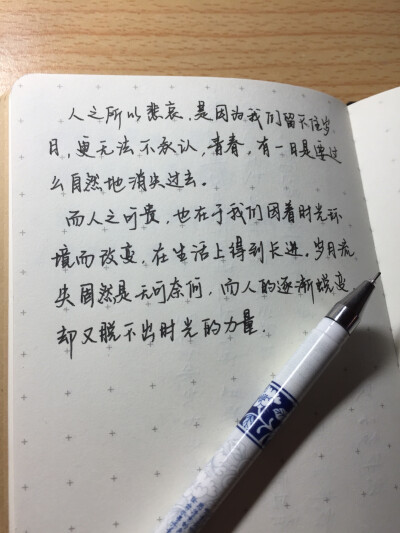 人之所以悲哀,是因为我们留不住岁
月,更无法不承认,青春,有一日是要这
么自然地消失过去。
而人之可贵,也在于我们因着时光环
境而改变,在生活上得到长进。岁月流
失固然是无可奈何,而人的逐渐蜕变
却又脱不出时光的力量.